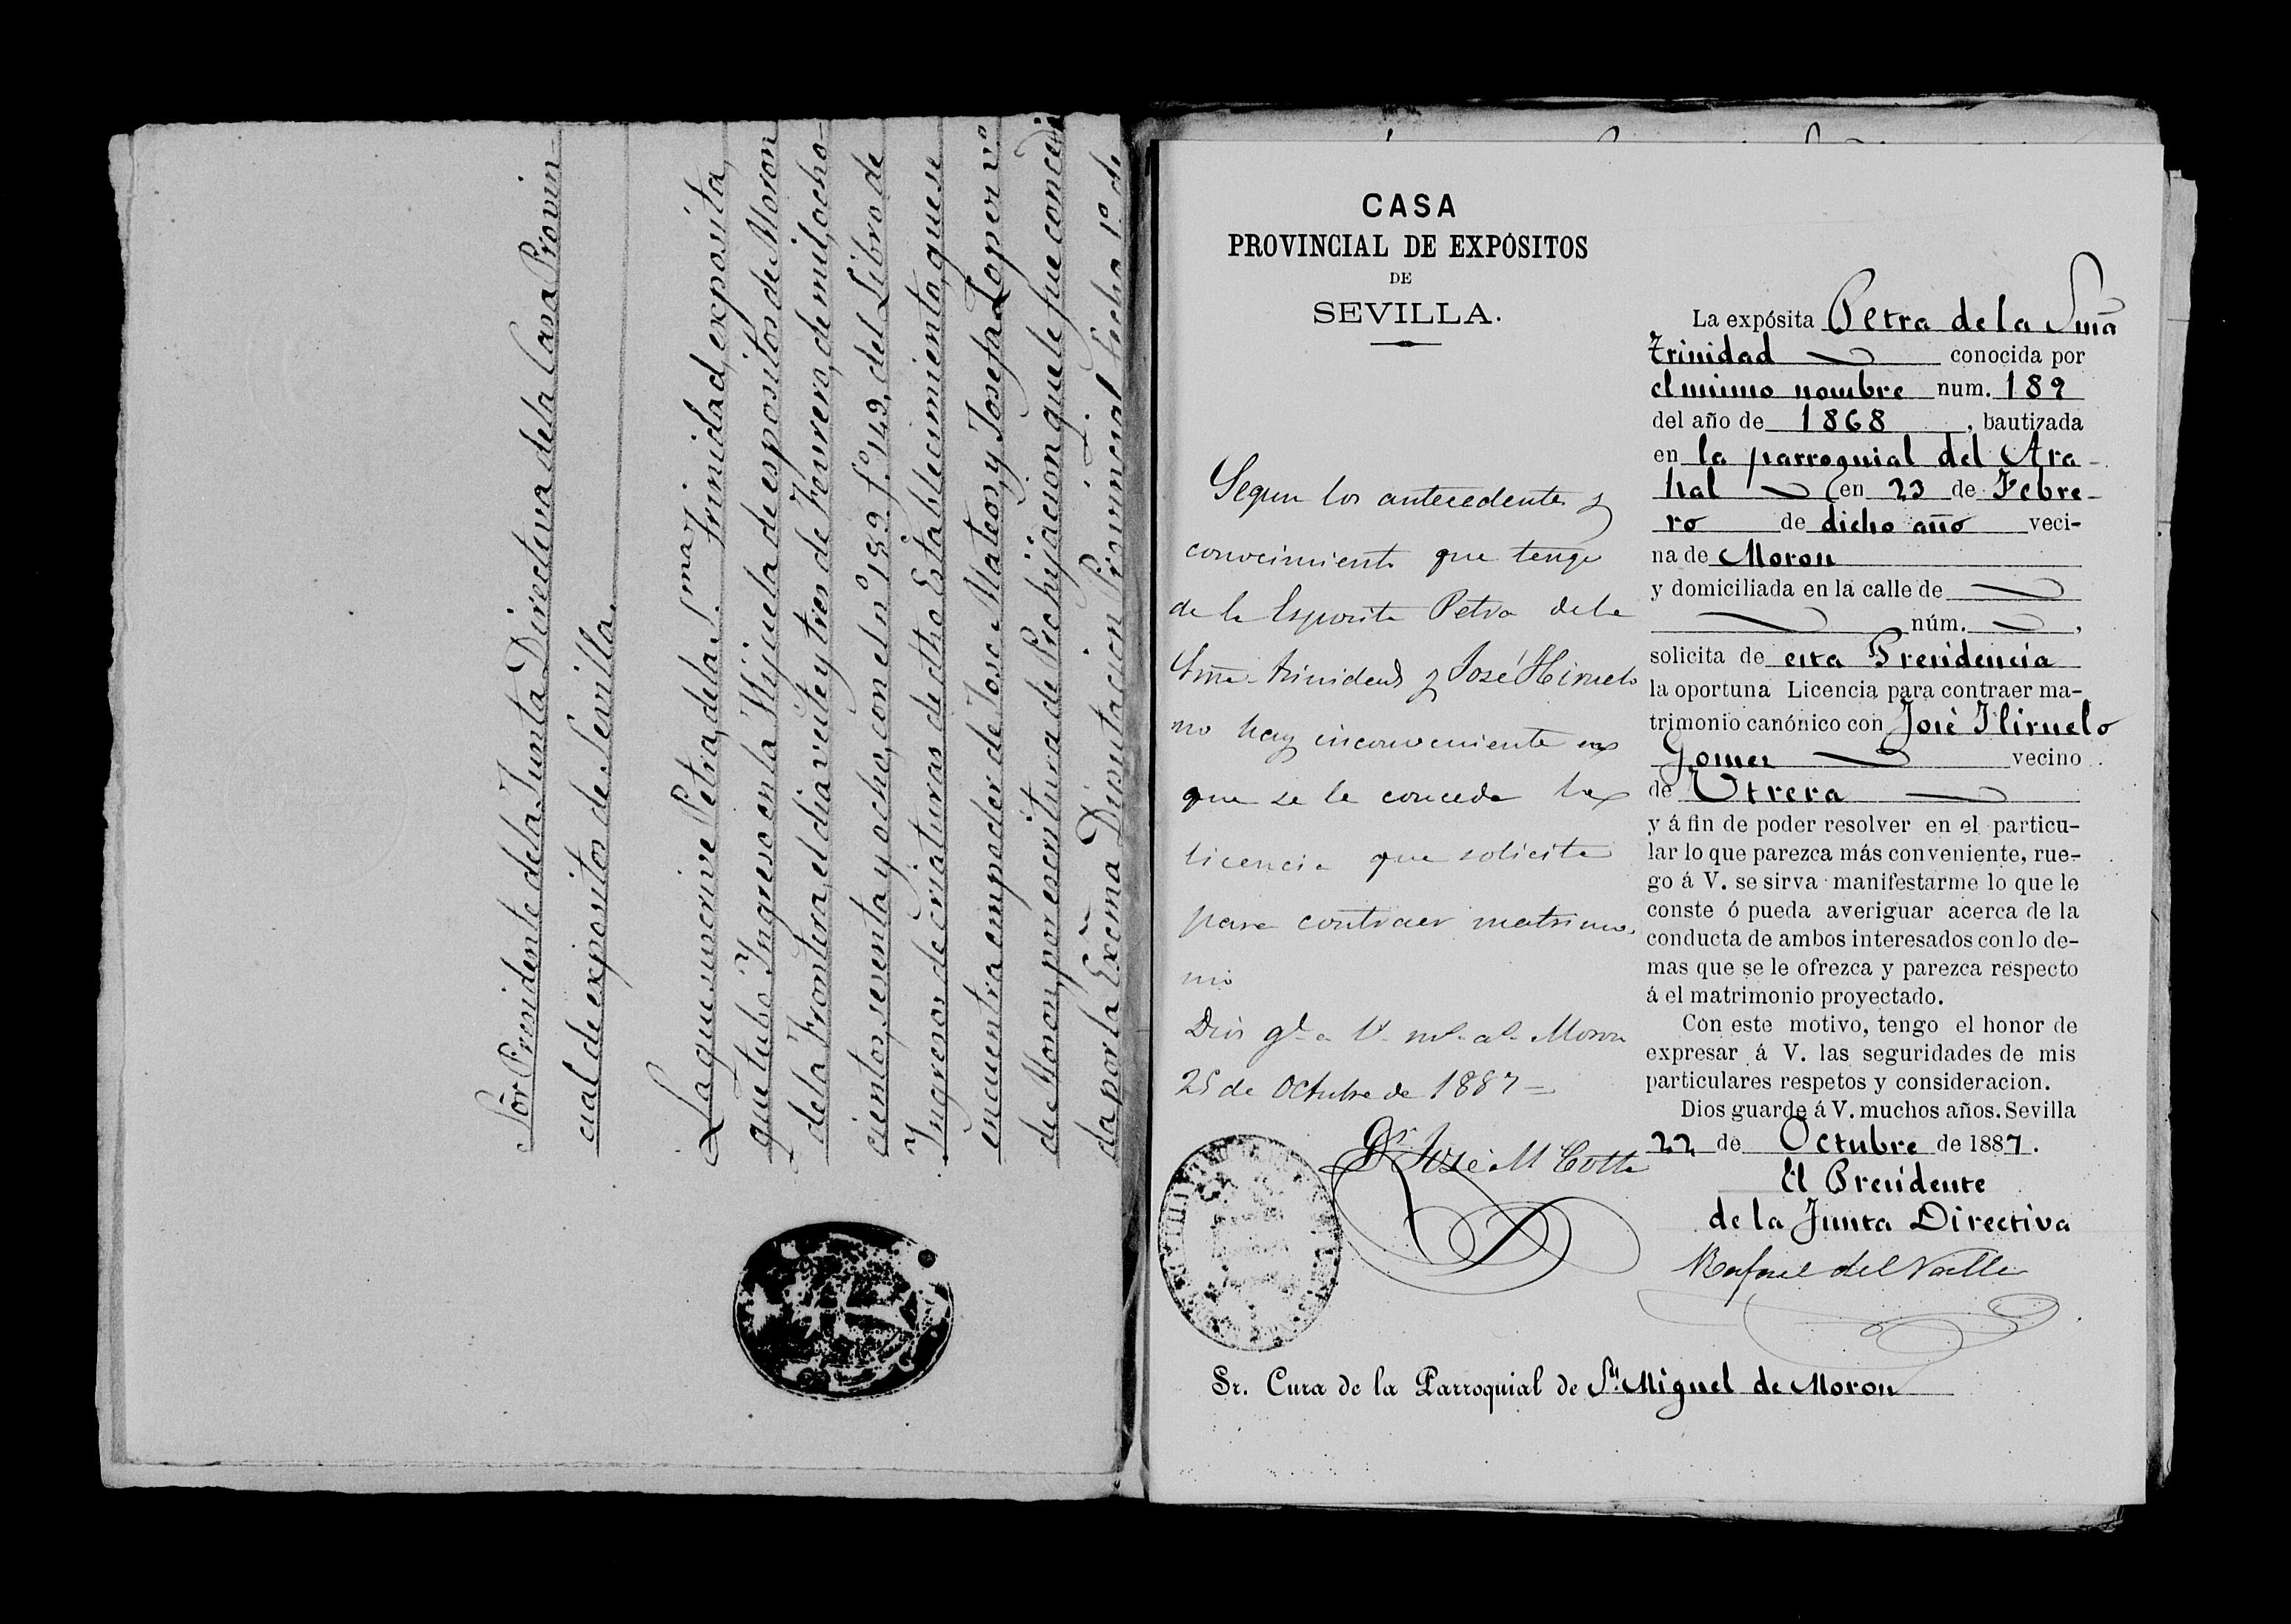 Sõr Presidente dela Junta Directiva dela Casa Provin-
cial de expositos de Sevilla.
La que suscrive Petra, dela S.ma Trinidad, exposita,
que tubo Ingreso en la Hijuela de espositos de Moron
dela Frontera, el dia veinte y tres de Febrero, de mil, ocho-
cientos, sesenta y ocho, con el nº 189, f.º 149, del Libro de
Ingresos de criaturas de dtho Establecimiento, que se
encuentra em poder de Jose Mateos, y Josefa Lopez v.º
de Moron, por escritura de Prohijacion que le fue concedi
da por la Excma Diputacion Provincial fecha 1º de
CASA
PROVINCIAL DE EXPÓSITOS
DE
SEVILLA.
Segun los antecedentes y
conocimiento que tengo
de la Esposita Petra de la
Sma. trinidad y José Hiruelo
no hay inconveniente en
que se le conceda la
licencia que solicita
para contraer matrimo-
nio
Dios gd. a V. ms. as. Moron
25 de Octubre de 1887=
José M Cotta
La expósita Petra de la Sma
Trinidad conocida por
el mismo nombre num. 189
del año de 1868, bautizada
en la parroquial del Ara-
hal en 23 de Febre-
ro de dicho año veci-
na de Moron
y domiciliada en la calle de
núm. ,
solicita de esta Presidencia
la oportuna Licencia para contraer ma-
trimonio canónico con José Hiruelo
Gomez vecino
de Utrera
y á fin de poder resolver en el particu-
lar lo que parezca más conveniente, rue-
go á V. se sirva manifestarme lo que le
conste ó pueda averiguar acerca de la
conducta de ambos interesados con lo de-
mas que se le ofrezca y parezca respecto
á el matrimonio proyectado.
Con este motivo, tengo el honor de
expresar á V. las seguridades de mis
particulares respetos y consideracion.
Dios guarde á V. muchos años. Sevilla
22 de Octubre de 1887.
El Presidente
de la Junta Directiva
Rafael del Valle
Sr. Cura de la Parroquial de Sn. Miguel de Moron